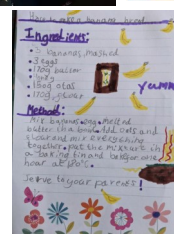 How to make a banana bread
Ingredients:
• 3 bananas, mashed
• 3 eggs
• 170g butter
• 150g oats
• 170g flour
yumm
Method:
Mix bananas, egg, melted
butter in a bowl. Add oats and
flour and mix everything
together. put the mixture in
a baking tin and bake for one
hour at 180°c.
Serve to your parents!